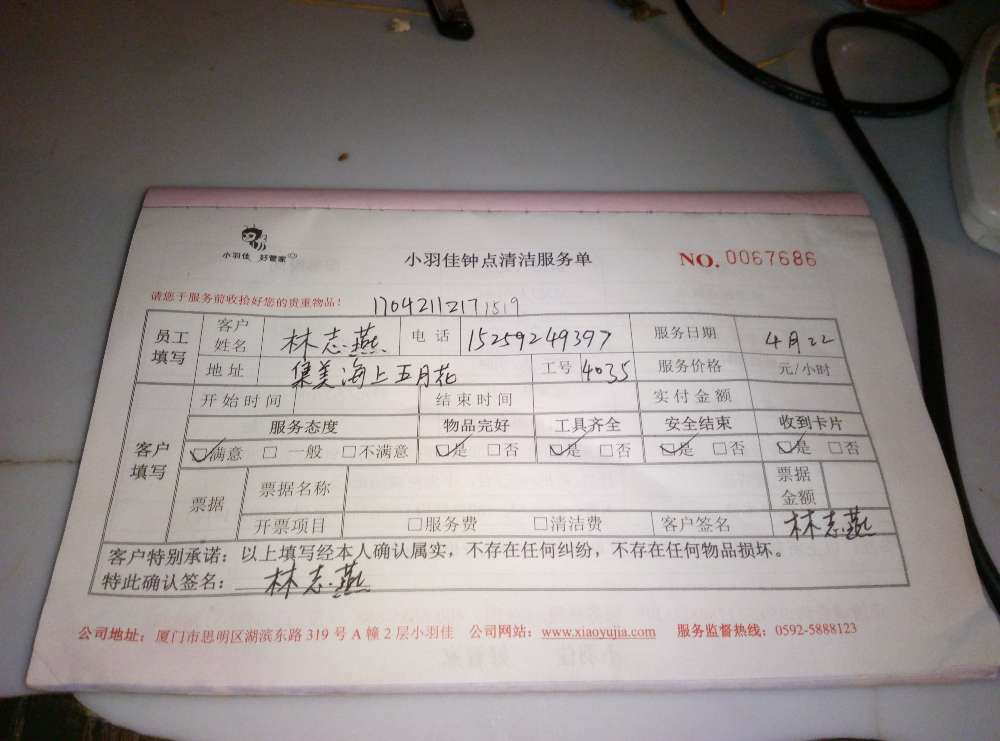 小羽佳 好管家
小羽佳钟点清洁服务单
NO. 0067686
请您于服务前收拾好您的贵重物品!
17042112171519
员工填写 客户姓名 林志燕 电话 15259249397 服务日期 4月22
地址 集美海上五月花 工号 4035 服务价格 元/小时
客户填写 开始时间 结束时间 实付金额
服务态度 物品完好 工具齐全 安全结束 收到卡片
☑满意 □一般 □不满意 ☑是 □否 ☑是 □否 ☑是 □否 ☑是 □否
票据 票据名称 票据金额
开票项目 □服务费 □清洁费 客户签名 林志燕
客户特别承诺:以上填写经本人确认属实,不存在任何纠纷,不存在任何物品损坏。
特此确认签名: 林志燕
公司地址:厦门市思明区湖滨东路 319 号 A 幢 2 层小羽佳 公司网站:www.xiaoyujia.com 服务监督热线:0592-5888123